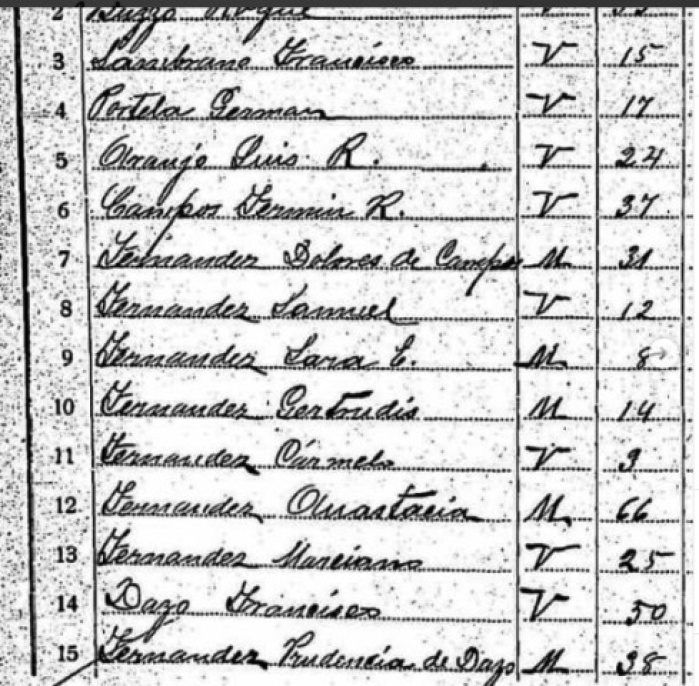 2 Buzzo Roque V
3 Sambrano Francisco V 15
4 Portela German V 17
5 Araujo Luis R. V 24
6 Campos Fermin R. V 37
7 Fernandez Dolores de Campos M 31
8 Fernandez Samuel V 12
9 Fernandez Sara E. M 8
10 Fernandez Gertrudis M 14
11 Fernandez Cármelo V 9
12 Fernandez Anastacia M. 66
13 Fernandez Marciano V 25
14 Dazo Francisco V 50
15 Fernandez Prudencia de Dazo M 38